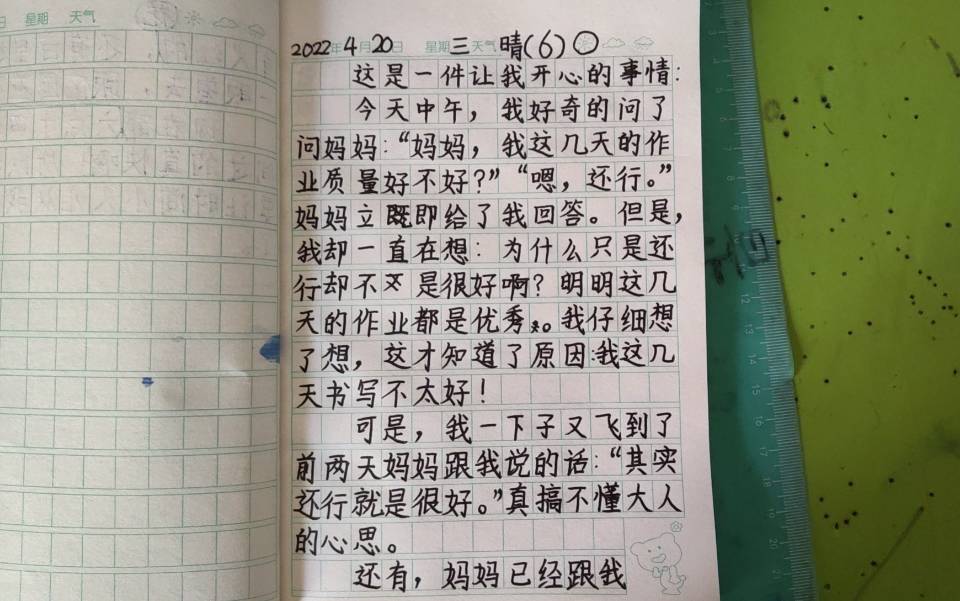 日 星期 天气
2022年4月20日 星期三 天气 晴(6)
这是一件让我开心的事情:
今天中午，我好奇的问了
问妈妈:“妈妈，我这几天的作
业质量好不好?”“嗯，还行。”
妈妈立既即给了我回答。但是，
我却一直在想:为什么只是还
行却不 是很好啊?明明这几
天的作业都是优秀 。我仔细想
了想，这才知道了原因:我这几
天书写不太好!
可是，我一下子又飞到了
前两天妈妈跟我说的话:“其实
还行就是很好。”真搞不懂大人
的心思。
还有，妈妈已经跟我